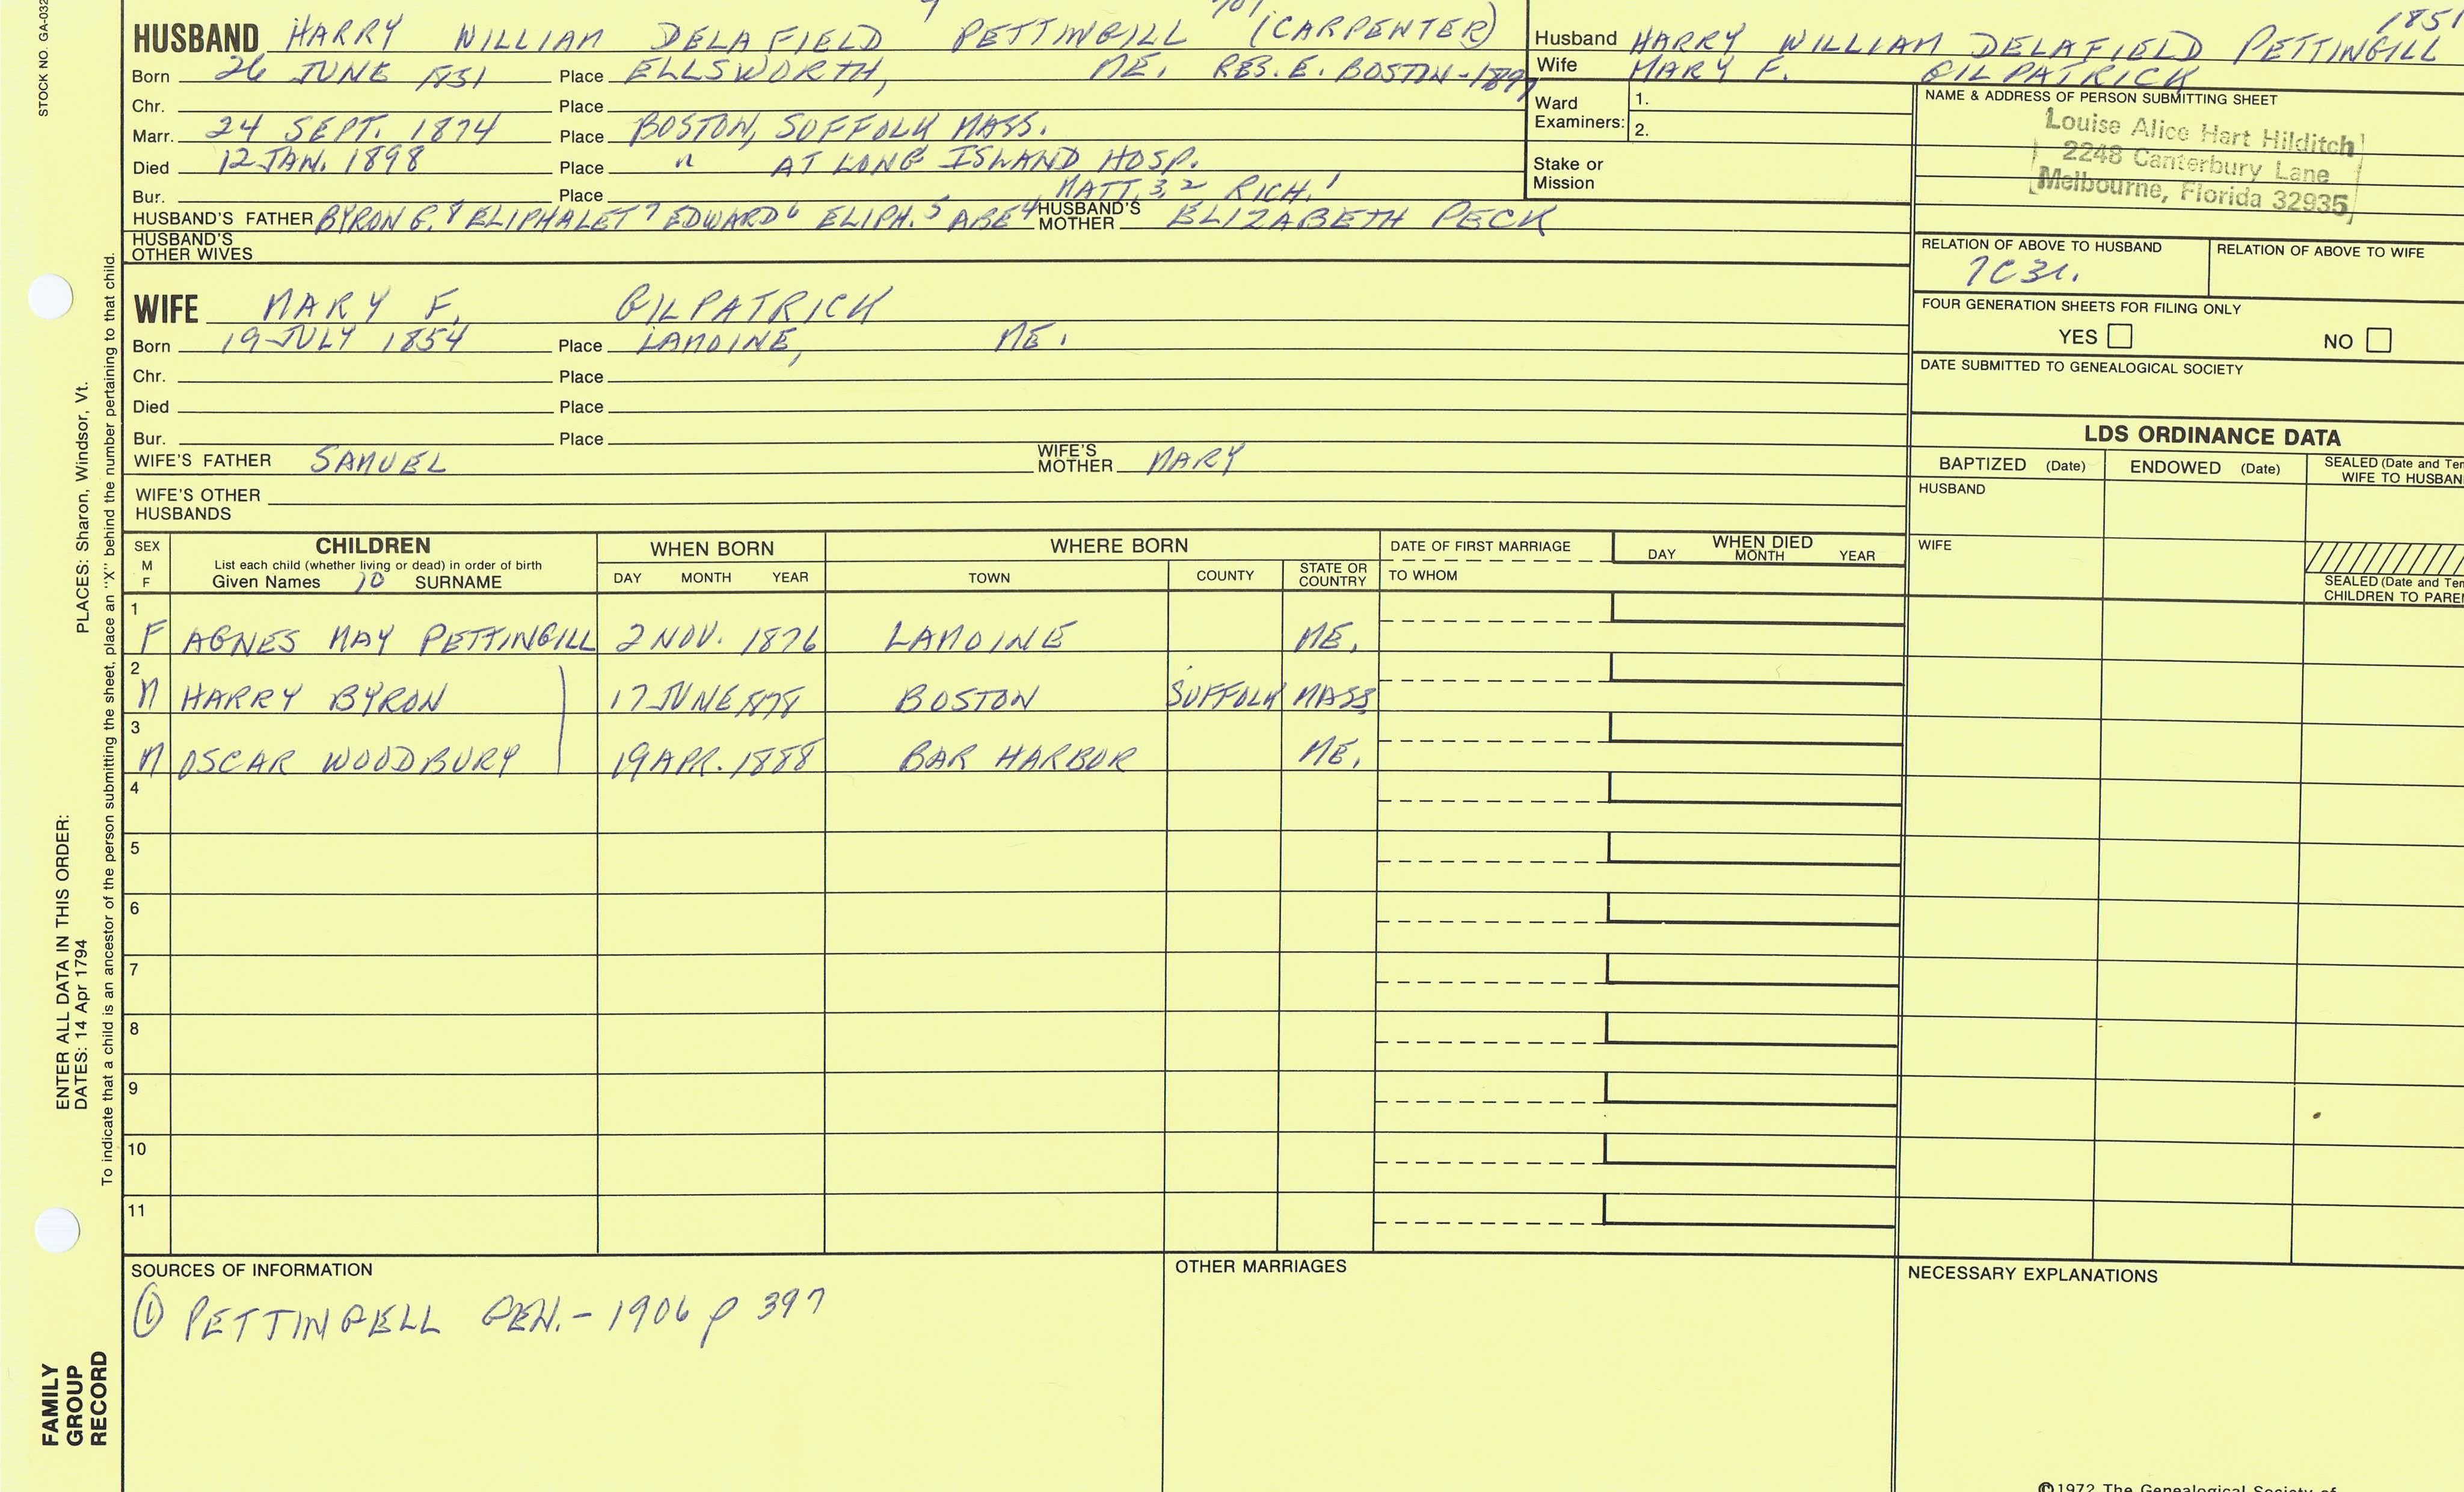 STOCK NO. GA-032
9 701 1851
HUSBAND HARRY WILLIAM DELAFIELD PETTINGILL (CARPENTER)
Born 26 JUNE 1851 Place ELLSWORTH, ME. RES. E. BOSTON-1897
Chr. Place
Marr. 24 SEPT. 1874 Place BOSTON, SUFFOLK MASS.
Died 12 JAN. 1898 Place " AT LONG ISLAND HOSP.
Bur. Place MATT.3,2 RICH.1
HUSBAND'S FATHER BYRON G.8 ELIPHALET7 EDWARD6 ELIPH.5 ABE4 HUSBAND'S MOTHER ELIZABETH PECK
HUSBAND'S OTHER WIVES
WIFE MARY F. GILPATRICK
Born 19 JULY 1854 Place LAMOINE, ME.
Chr. Place
Died Place
Bur. Place
WIFE'S FATHER SAMUEL WIFE'S MOTHER MARY
WIFE'S OTHER HUSBANDS
Husband HARRY WILLIAM DELAFIELD PETTINGILL
Wife MARY F. GILPATRICK
Ward Examiners: 1.
2.
Stake or Mission
NAME & ADDRESS OF PERSON SUBMITTING SHEET
Louise Alice Hart Hilditch
2248 Canterbury Lane
Melbourne, Florida 32935
RELATION OF ABOVE TO HUSBAND RELATION OF ABOVE TO WIFE
7C3r.
FOUR GENERATION SHEETS FOR FILING ONLY
YES NO
DATE SUBMITTED TO GENEALOGICAL SOCIETY
LDS ORDINANCE DATA
BAPTIZED (Date) ENDOWED (Date) SEALED (Date and Tem
WIFE TO HUSBAN
HUSBAND
WIFE
SEALED (Date and Tem
CHILDREN TO PAREN
SEX CHILDREN WHEN BORN WHERE BORN DATE OF FIRST MARRIAGE WHEN DIED
M List each child (whether living or dead) in order of birth DAY MONTH YEAR
F Given Names 10 SURNAME DAY MONTH YEAR TOWN COUNTY STATE OR COUNTRY TO WHOM
1 F AGNES MAY PETTINGILL 2 NOV. 1876 LAMOINE ME.
2 M HARRY BYRON 17 JUNE 1878 BOSTON SUFFOLK MASS.
3 M OSCAR WOODBURY 19 APR. 1888 BAR HARBOR ME.
4
5
6
7
8
9
10
11
SOURCES OF INFORMATION OTHER MARRIAGES NECESSARY EXPLANATIONS
① PETTINGELL GEN.-1906 p 397
©1972 The Genealogical Society of
PLACES: Sharon, Windsor, Vt.
To indicate that a child is an ancestor of the person submitting the sheet, place an "X" behind the number pertaining to that child.
ENTER ALL DATA IN THIS ORDER:
DATES: 14 Apr 1794
FAMILY
GROUP
RECORD